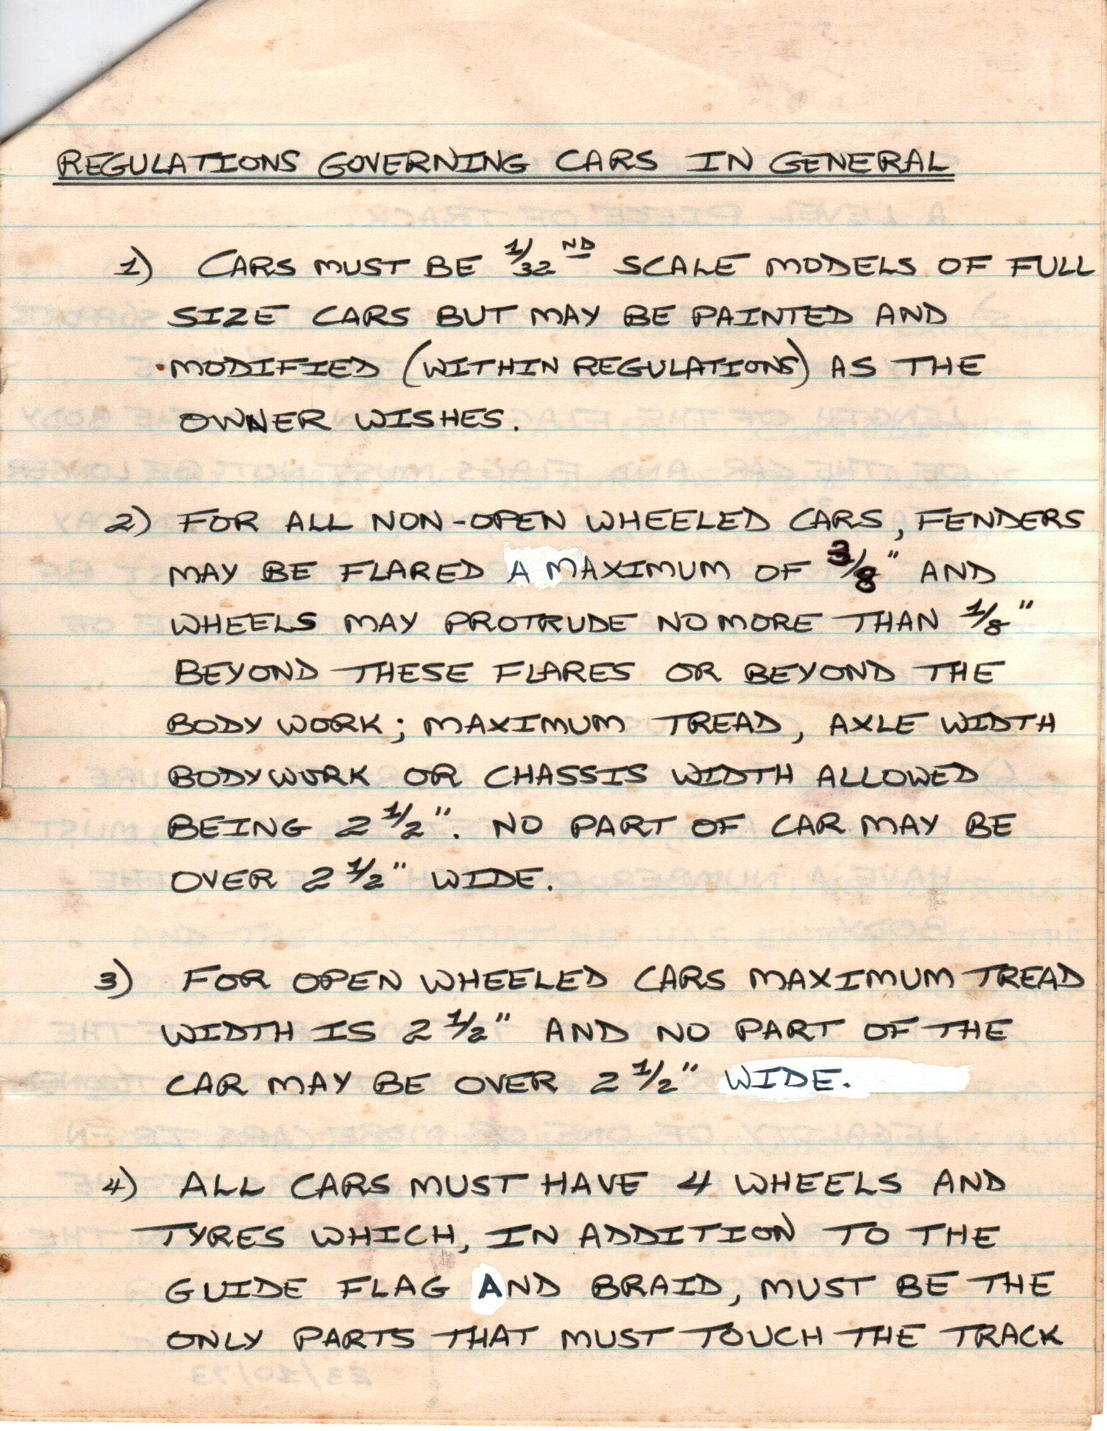 REGULATIONS GOVERNING CARS IN GENERAL
1) CARS MUST BE 1/32 ND SCALE MODELS OF FULL
SIZE CARS BUT MAY BE PAINTED AND
MODIFIED (WITHIN REGULATIONS) AS THE
OWNER WISHES.
2) FOR ALL NON-OPEN WHEELED CARS, FENDERS
MAY BE FLARED A MAXIMUM OF 3/8" AND
WHEELS MAY PROTRUDE NO MORE THAN 1/8"
BEYOND THESE FLARES OR BEYOND THE
BODY WORK; MAXIMUM TREAD, AXLE WIDTH
BODYWORK OR CHASSIS WIDTH ALLOWED
BEING 2 1/2". NO PART OF CAR MAY BE
OVER 2 1/2" WIDE.
3) FOR OPEN WHEELED CARS MAXIMUM TREAD
WIDTH IS 2 1/2" AND NO PART OF THE
CAR MAY BE OVER 2 1/2" WIDE.
4) ALL CARS MUST HAVE 4 WHEELS AND
TYRES WHICH, IN ADDITION TO THE
GUIDE FLAG AND BRAID, MUST BE THE
ONLY PARTS THAT MUST TOUCH THE TRACK
23/10/73